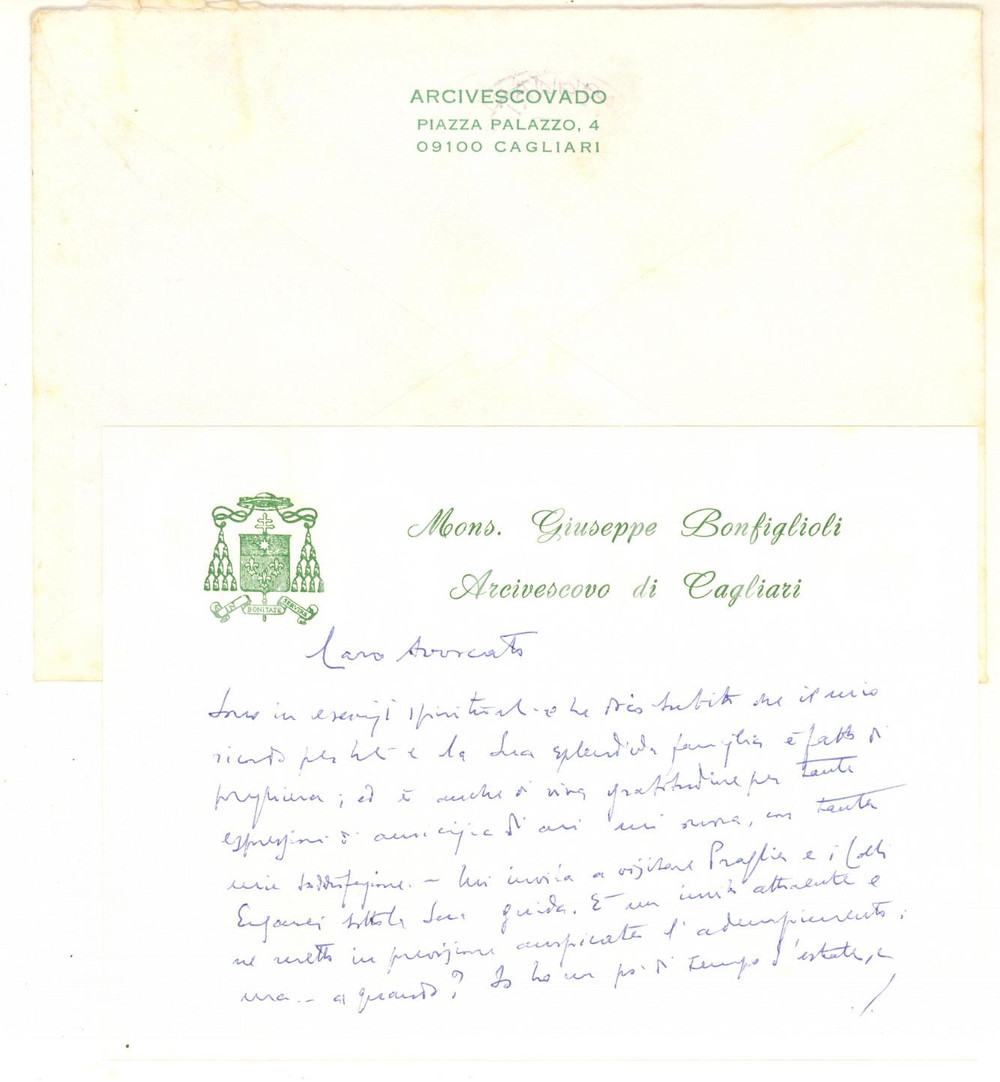 ARCIVESCOVADO
PIAZZA PALAZZO, 4
09100 CAGLIARI
Mons. Giuseppe Bonfiglioli
Arcivescovo di Cagliari
IN BONITATE SERVIRE
Caro Avvocato
Sono in esercizi spirituali e ho subito che il mio
ricordo per Lei e la Sua splendida famiglia è fatto di
preghiera; ed è anche di viva gratitudine per tante
espressioni di amicizia di cui mi onora, con tanta
mia soddisfazione. – Mi invita a visitare Praglia e i Colli
Euganei sotto la Sua guida. È un invito attraente e
ne metto in previsione auspicata l'adempimento;
ma – a quando? Io ho un po' di tempo d'estate,
./.